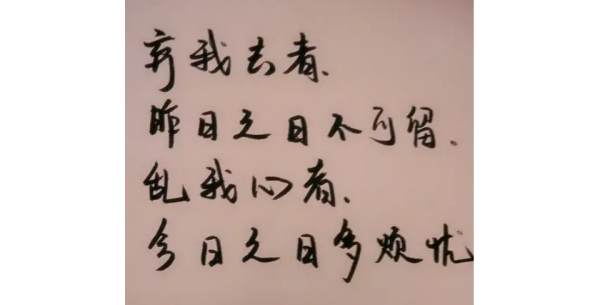 弃我去者、
昨日之日不可留.
乱我心者、
今日之日多烦忧